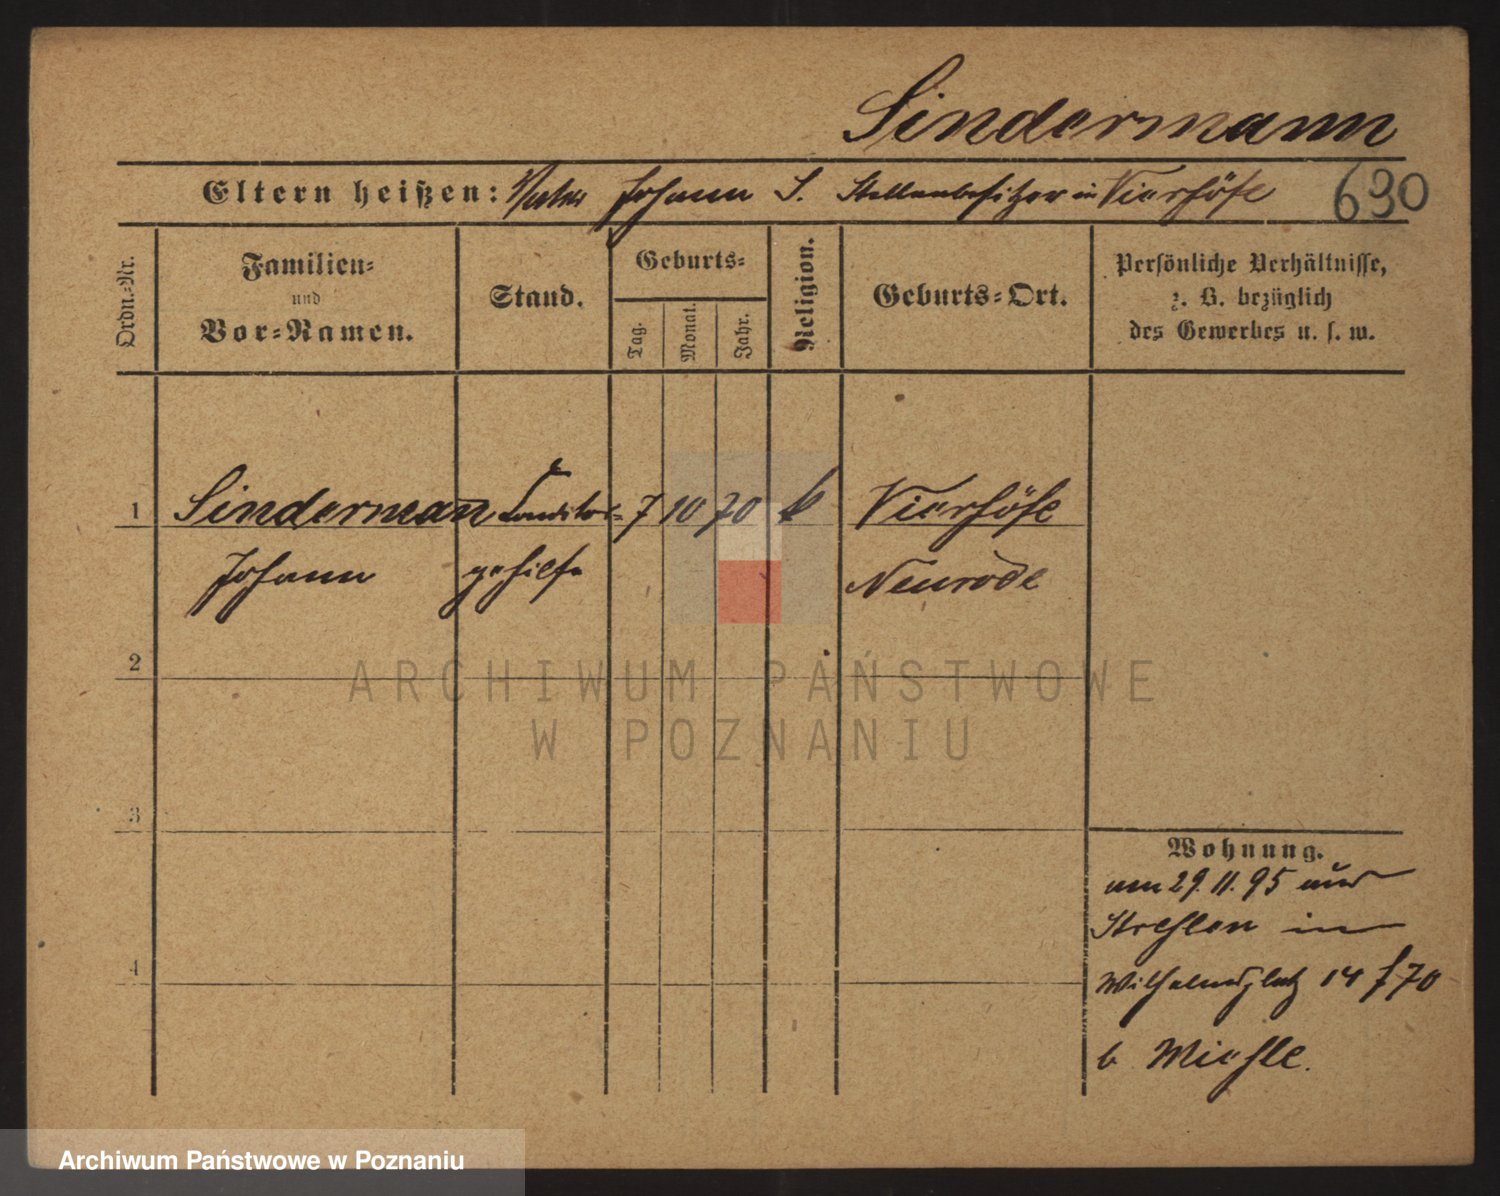 Sindermann
Eltern heißen: Vater Johann S. Stellenbesitzer in Vierhöfe 690
Ordn.-Nr.
Familien-
und
Vor-Namen.
Stand.
Geburts-
Tag.
Monat.
Jahr.
Religion.
Geburts-Ort.
Persönliche Verhältnisse,
z. B. bezüglich
des Gewerbes u. s. w.
1 Sinderman̄ Conditor- 7 10 70 k Vierhöfe
Johann gehilfe Neurode
2
ARCHIWUM PAŃSTWOWE
W POZNANIU
3
4
Wohnung.
am 29.11.95 aus
Strehlen in
Wilhelmsplatz 14 f 70
b Miehle.
Archiwum Państwowe w Poznaniu